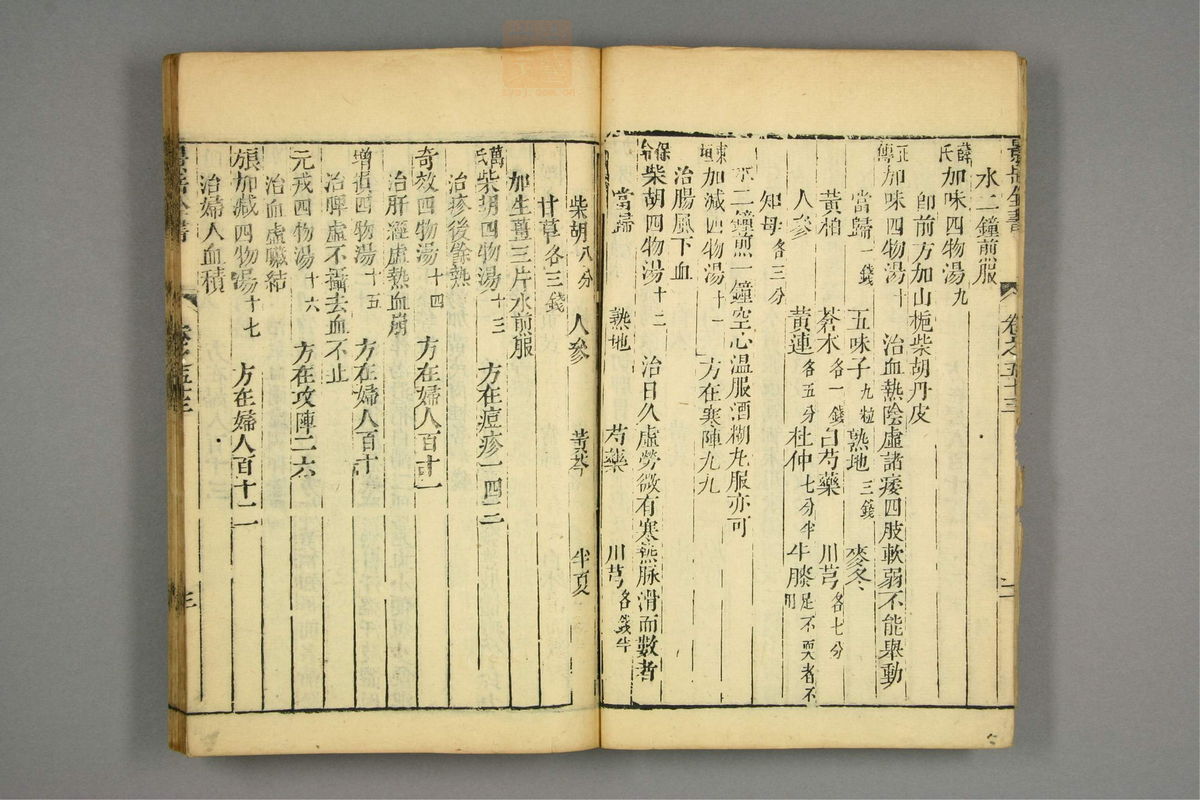 景岳全書 卷之五十三 二
水二鐘煎服
薛氏加味四物湯九
即前方加山梔柴胡丹皮
正傳加味四物湯十 治血熱陰虛諸痿四肢軟弱不能舉動
當歸一錢 五味子九粒 熟地三錢 麥冬
黃柏 蒼朮各一錢 白芍藥 川芎各七分
人參 黃連各五分 杜仲七分半 牛膝足不耎者不用
知母各三分
水二鐘煎一鐘空心溫服酒糊丸服亦可
東垣加減四物湯十一 方在寒陣九九
治腸風下血
保命柴胡四物湯十二 治日久虛勞微有寒熱脉滑而數者
當歸 熟地 芍藥 川芎各錢半
柴胡八分 人參 黃芩 半夏
甘草各三錢
加生薑三片水煎服
萬氏柴胡四物湯十三 方在痘疹一四三
治疹後餘熱
奇效四物湯十四 方在婦人百十一
治肝經虛熱血崩
增損四物湯十五 方在婦人百十
治脾虛不攝去血不止
元戎四物湯十六 方在攻陣二六
治血虛臟結
加減四物湯十七 方在婦人百十二
治婦人血積
景岳全書 卷之五十三 三